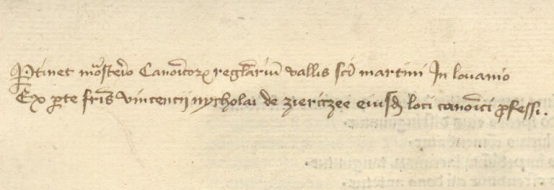 Ptinet mo͞stero Cano͞icorꝝ regl͞ariu͞ vallis sc͞i martini In louanio
Ex ꝑte fr͞is vincencij nycholai de zierczee eiusdꝫ loci cano͞ici ꝓfessi.